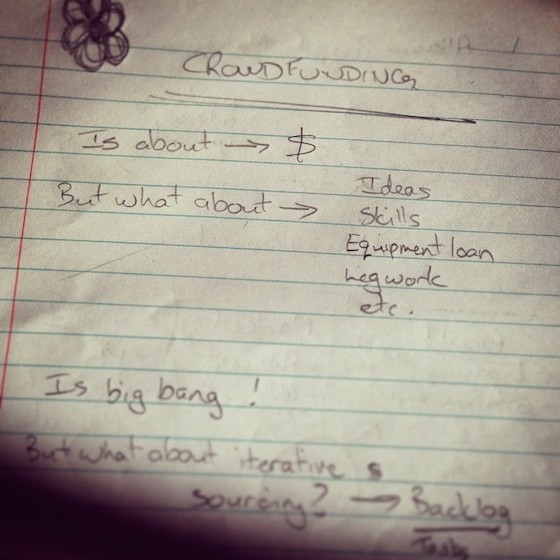 CROWDFUNDING
Is about → $
But what about → Ideas
Skills
Equipment loan
Legwork
etc.
Is big bang !
But what about iterative s
sourcing? → Backlog
Tasks